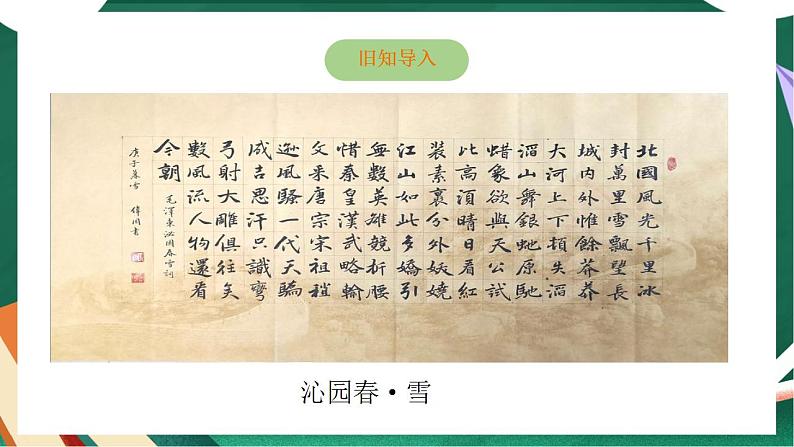 旧知导入
北國風光千里冰
封萬里雪飄望長
城內外惟餘莽莽
大河上下頓失滔
滔山舞銀虵原馳
蜡象欲與天公試
比高須晴日看紅
裝素裹分外妖嬈
江山如此多嬌引
無數英雄競折腰
惜秦皇漢武略輸
文采唐宗宋祖稍
遜風騷一代天驕
成吉思汗只識彎
弓射大雕俱往矣
數風流人物還看
今朝
毛澤東沁園春雪詞
庚子
書
沁园春·雪